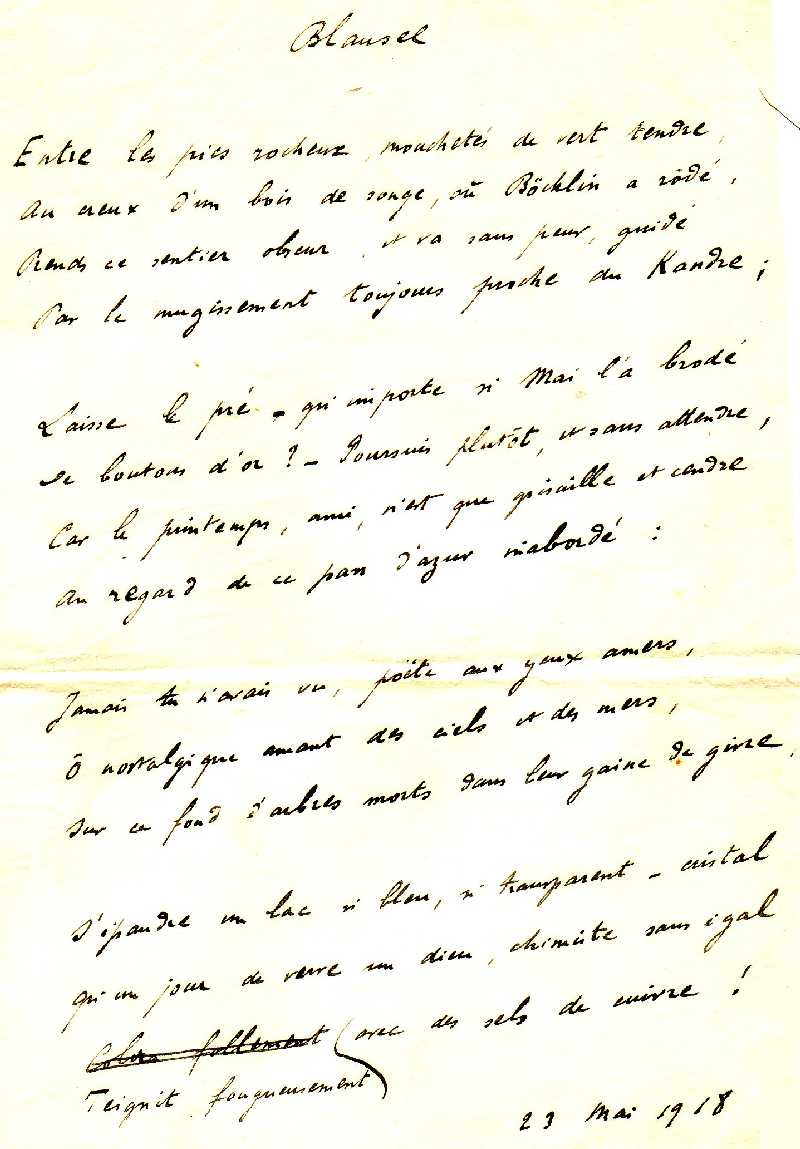 Blausee
Entre les pics rocheux, mouchetés de vert tendre,
Au creux d'un bois de songe, où Böcklin a rôdé,
Prends ce sentier obscur, et va sans peur, guidé
Par le mugissement toujours proche du Kandre ;
Laisse le pré - qu'importe si Mai l'a brodé
De boutons d'or ? - Poursuis plutôt, et sans attendre,
Car le printemps, ami, n'est que grisaille et cendre
Au regard de ce pan d'azur inabordé :
Jamais tu n'avais vu, poëte aux yeux amers,
Ô nostalgique amant des ciels et des mers,
Sur ce fond d'arbres morts dans leur gaine de givre,
S'épandre un lac si bleu, si transparent - cristal
Qu'un jour de verve un dieu, chimiste sans égal
Colora follement avec des sels de cuivre !
Teignit fougueusement
23 Mai 1918